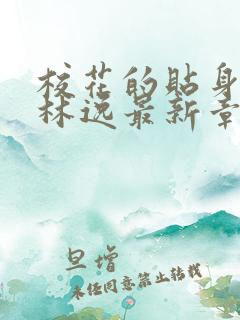 校花的贴身
林逸最新章
旦增
未经同意禁止转载